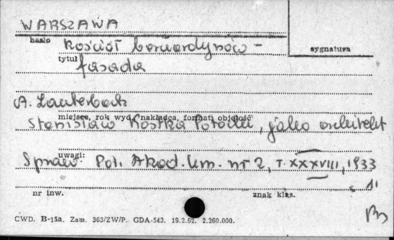 WARSZAWA
hasło Kościół bernardynów –
sygnatura
tytuł fasada
A. Lauterbach
miejsce, rok wyd., nakładca, format, objętość
Stanisław Kostka Potocki, jako architekt
uwagi:
Spraw. Pol. Akad. Um. nr 2, T. XXXVIII, 1933
s. 11
nr inw.
znak klas.
CWD. B-15a. Zam. 363/ZW/P. GDA-543. 19.2.62. 2.260.000.